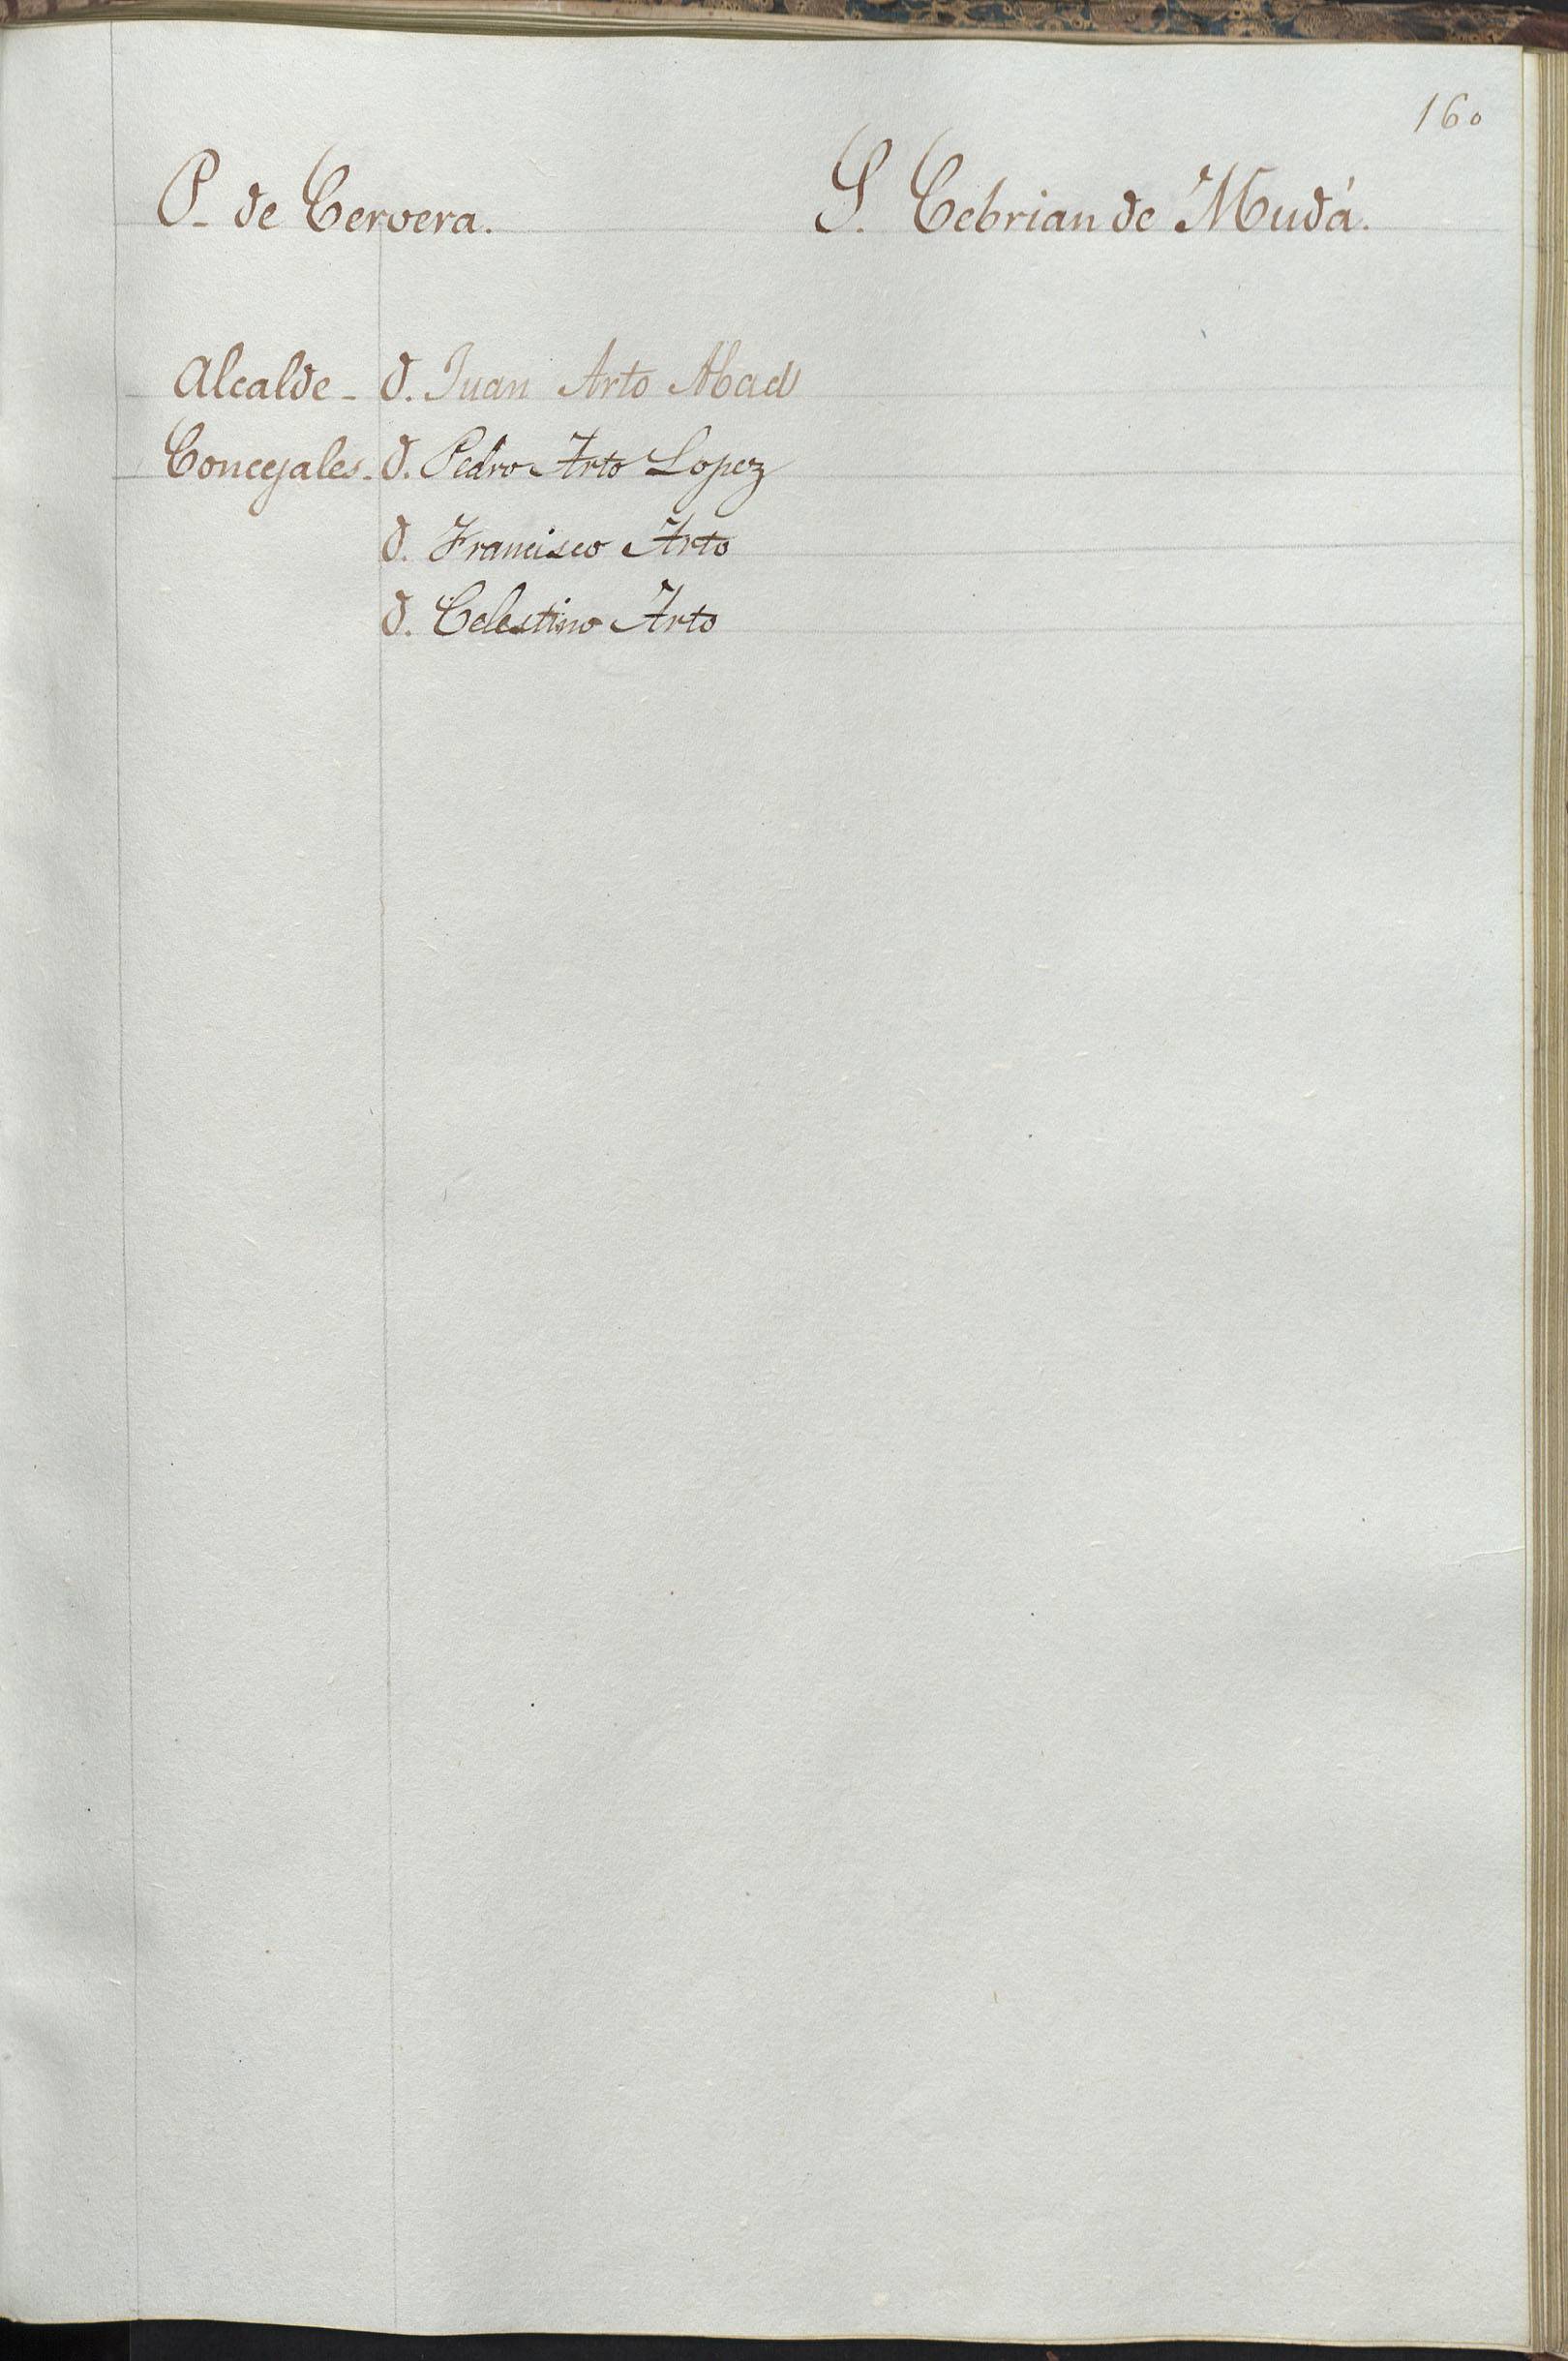 160
P. de Cervera. S. Cebrian de Mudá.
Alcalde - D. Juan Arto Abad
Concejales - D. Pedro Arto Lopez
D. Francisco Arto
D. Celestino Arto